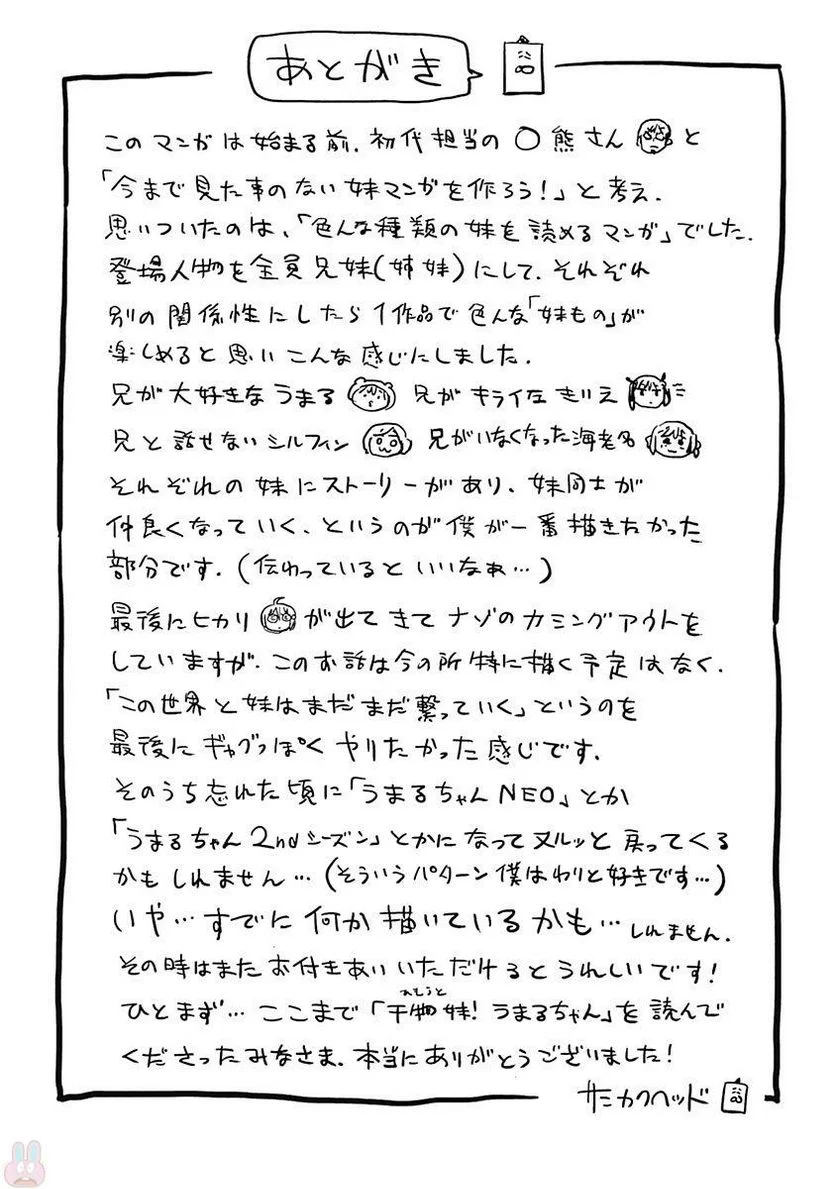 あとがき
このマンガは始まる前、初代担当の〇熊さんと
「今まで見た事のない妹マンガを作ろう!」と考え、
思いついたのは、「色んな種類の妹を読めるマンガ」でした。
登場人物を全員兄妹(姉妹)にして、それぞれ
別の関係性にしたら1作品で色んな「妹もの」が
楽しめると思いこんな感じにしました。
兄が大好きなうまる 兄がキライなきりえ
兄と話せないシルフィン 兄がいなくなった海老名
それぞれの妹にストーリーがあり、妹同士が
仲良くなっていく、というのが僕が一番描きたかった
部分です。(伝わっているといいなぁ…)
最後にヒカリが出てきてナゾのカミングアウトを
していますが、このお話は今の所特に描く予定はなく、
「この世界と妹はまだまだ繋っていく」というのを
最後にギャグっぽくやりたかった感じです。
そのうち忘れた頃に「うまるちゃんNEO」とか
「うまるちゃん2ndシーズン」とかになってヌルッと戻ってくる
かもしれません…(そういうパターン僕はわりと好きです…)
いや…すでに何か描いているかも…しれません。
その時はまたお付きあいいただけるとうれしいです!
ひとまず…ここまで「干物妹!うまるちゃん」を読んで
くださったみなさま、本当にありがとうございました!
サンカクヘッド